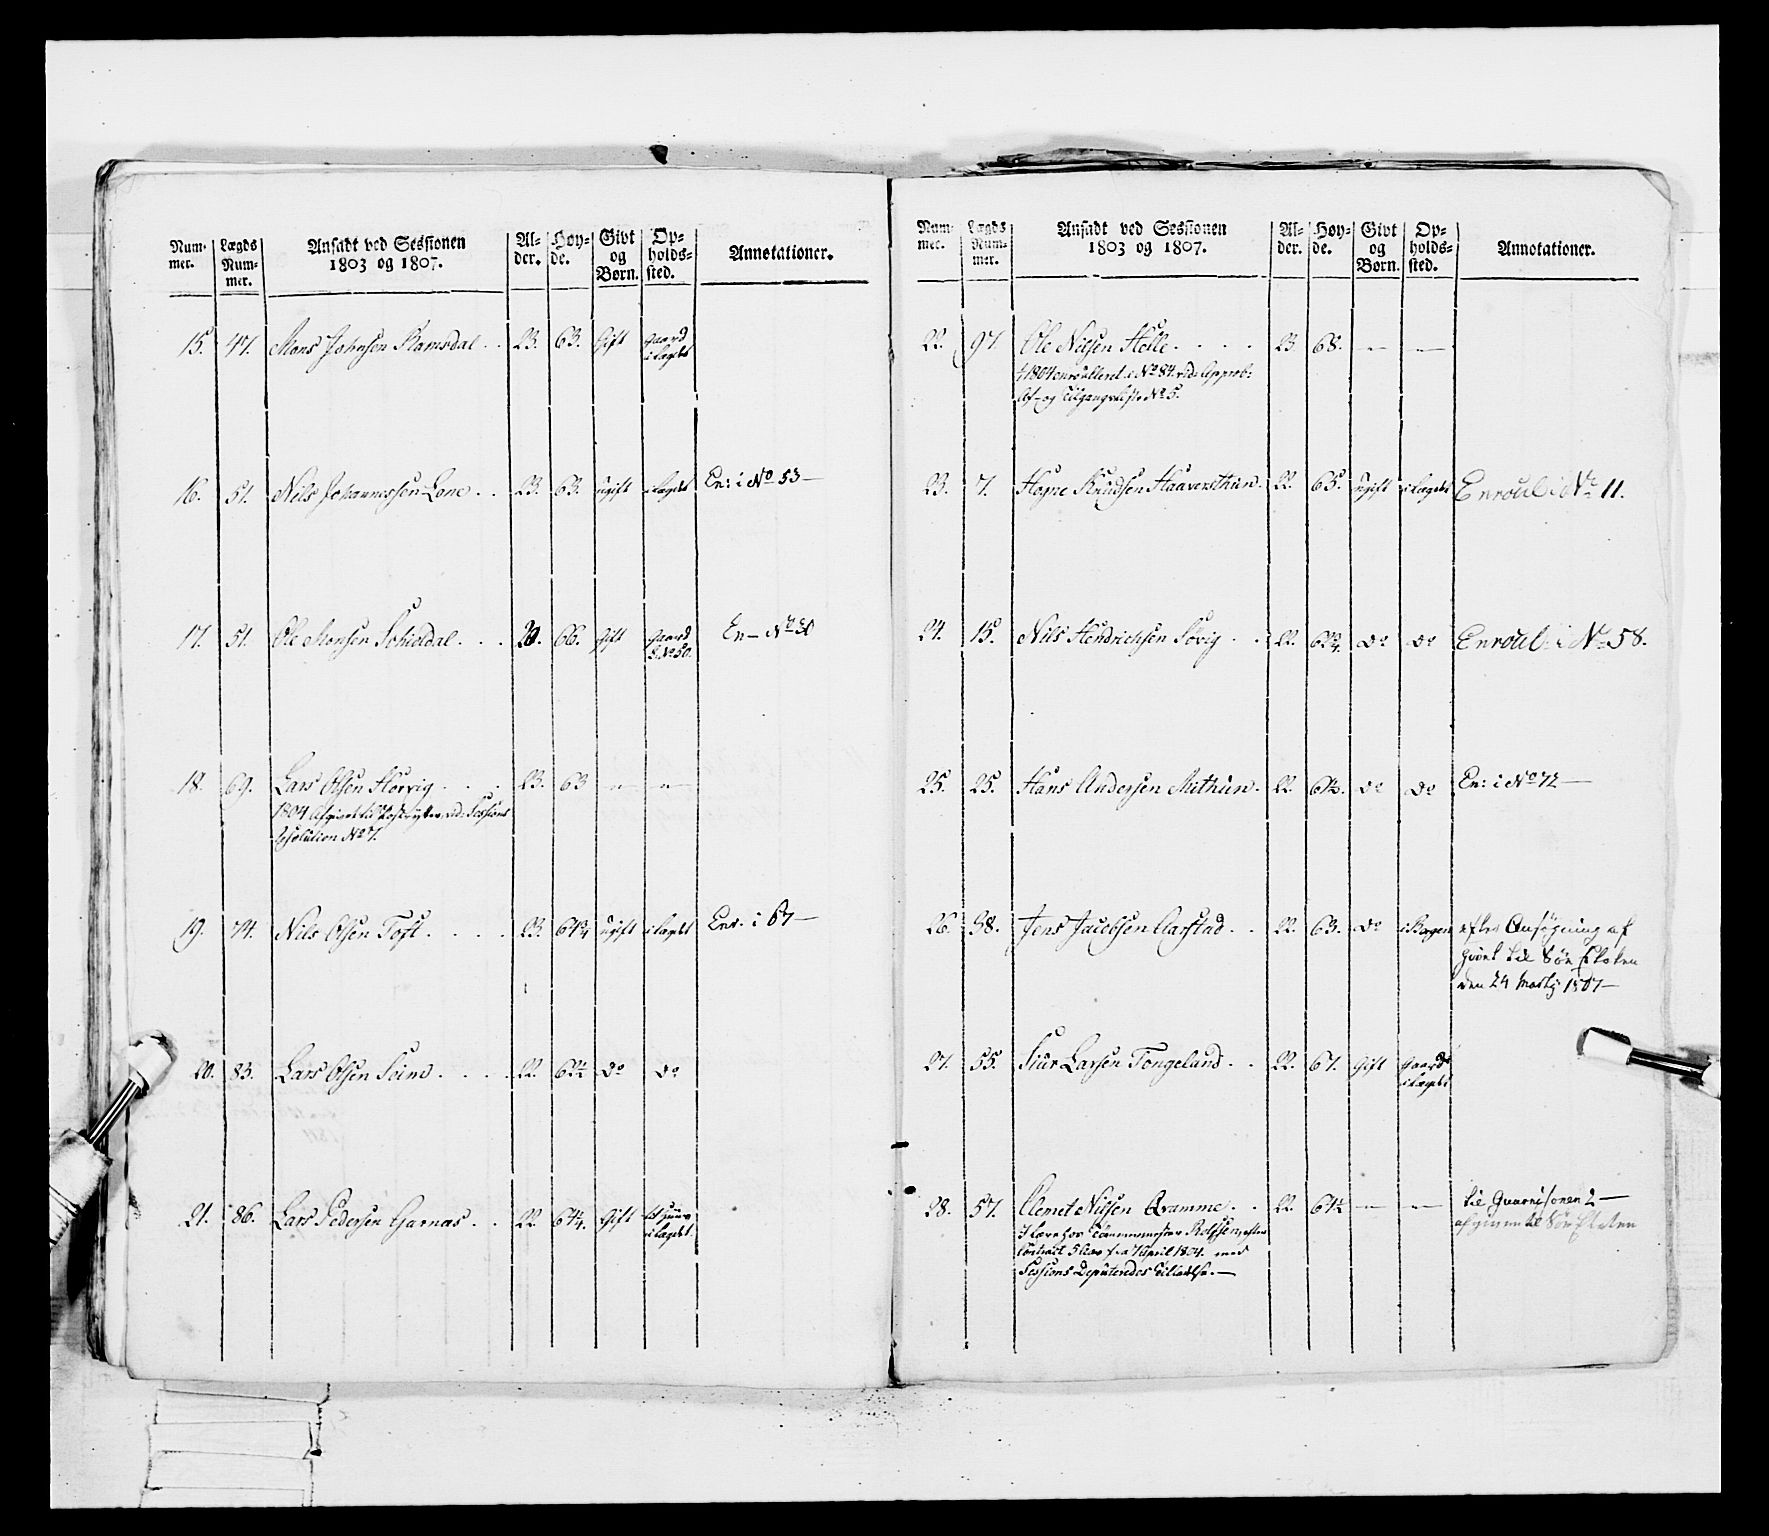 Num-
mer.
Lægds
Num-
mer.
Ansadt ved Sessionen
1803 og 1807.
Al-
der.
Høy-
de.
Givt
og
Børn.
Op-
holds-
sted.
Annotationer.
15. 47. Mons Johnsen Ramsdal . . 23. 63. Gift gaard
i lægdet
16. 51. Nils Johannessen Lone . . 23. 63. ugift i lægdet En: i No 53 —
17. 51. Ole Monsen Schieldal . . . 20. 66. Gift gaard
i No 50. En — No
18. 69. Lars Olsen Horvig . . . . 23. 63 — —
1804 Afgivet til vid: Sessions
Resolution No 7.
19. 74. Nils Olsen Toft . . . . 23. 64 3/4 ugift i lægdet Enr. i 67 —
20. 83. Lars Olsen Seim . . . . 22. 62 1/2 do do
21. 86. Lars Pedersen Garnas . . 22. 64 1/4. Gift et Huus
i lægdet
Num-
mer.
Lægds
Num-
mer.
Ansadt ved Sessionen
1803 og 1807.
Al-
der.
Høy-
de.
Givt
og
Børn.
Op-
holds-
sted.
Annotationer.
22. 97. Ole Nilsen Helle . . . . 23. 68. — —
1804 enroulleret i No 84. vid: Approb:
Af- og Tilgangsliste No 5.
23. 7. Hagne Knudsen Haaversthun . 22. 65. ugift i Lægdet Enroul: i No 11.
24. 15. Nils Hendrichsen Søvig . . 22. 62 3/4. do do Enroul: i No 58.
25. 25. Hans Andersen Mithun . 22. 64 1/2. do do En: i No 72 —
26. 38. Jens Jacobsen Aarstad . . 22. 63. do i Bergen efter Ansøgning af
givet til Søe Etaten
den 24 Martij 1807 —
27. 55. Siur Larsen Tongeland . . 22. 67. Gift gaard
i Lægdet
28. 57. Clemet Nilsen Qvamme . . 22. 64 1/2 — — til Guarnisonen 2 —
afgiven til Søe Etaten
I Lære hos Tømmermester Rolfsen, efter
Contract 5 Aar fra 7 April 1804. med
Sessions Deputeredes Tilladelse. —